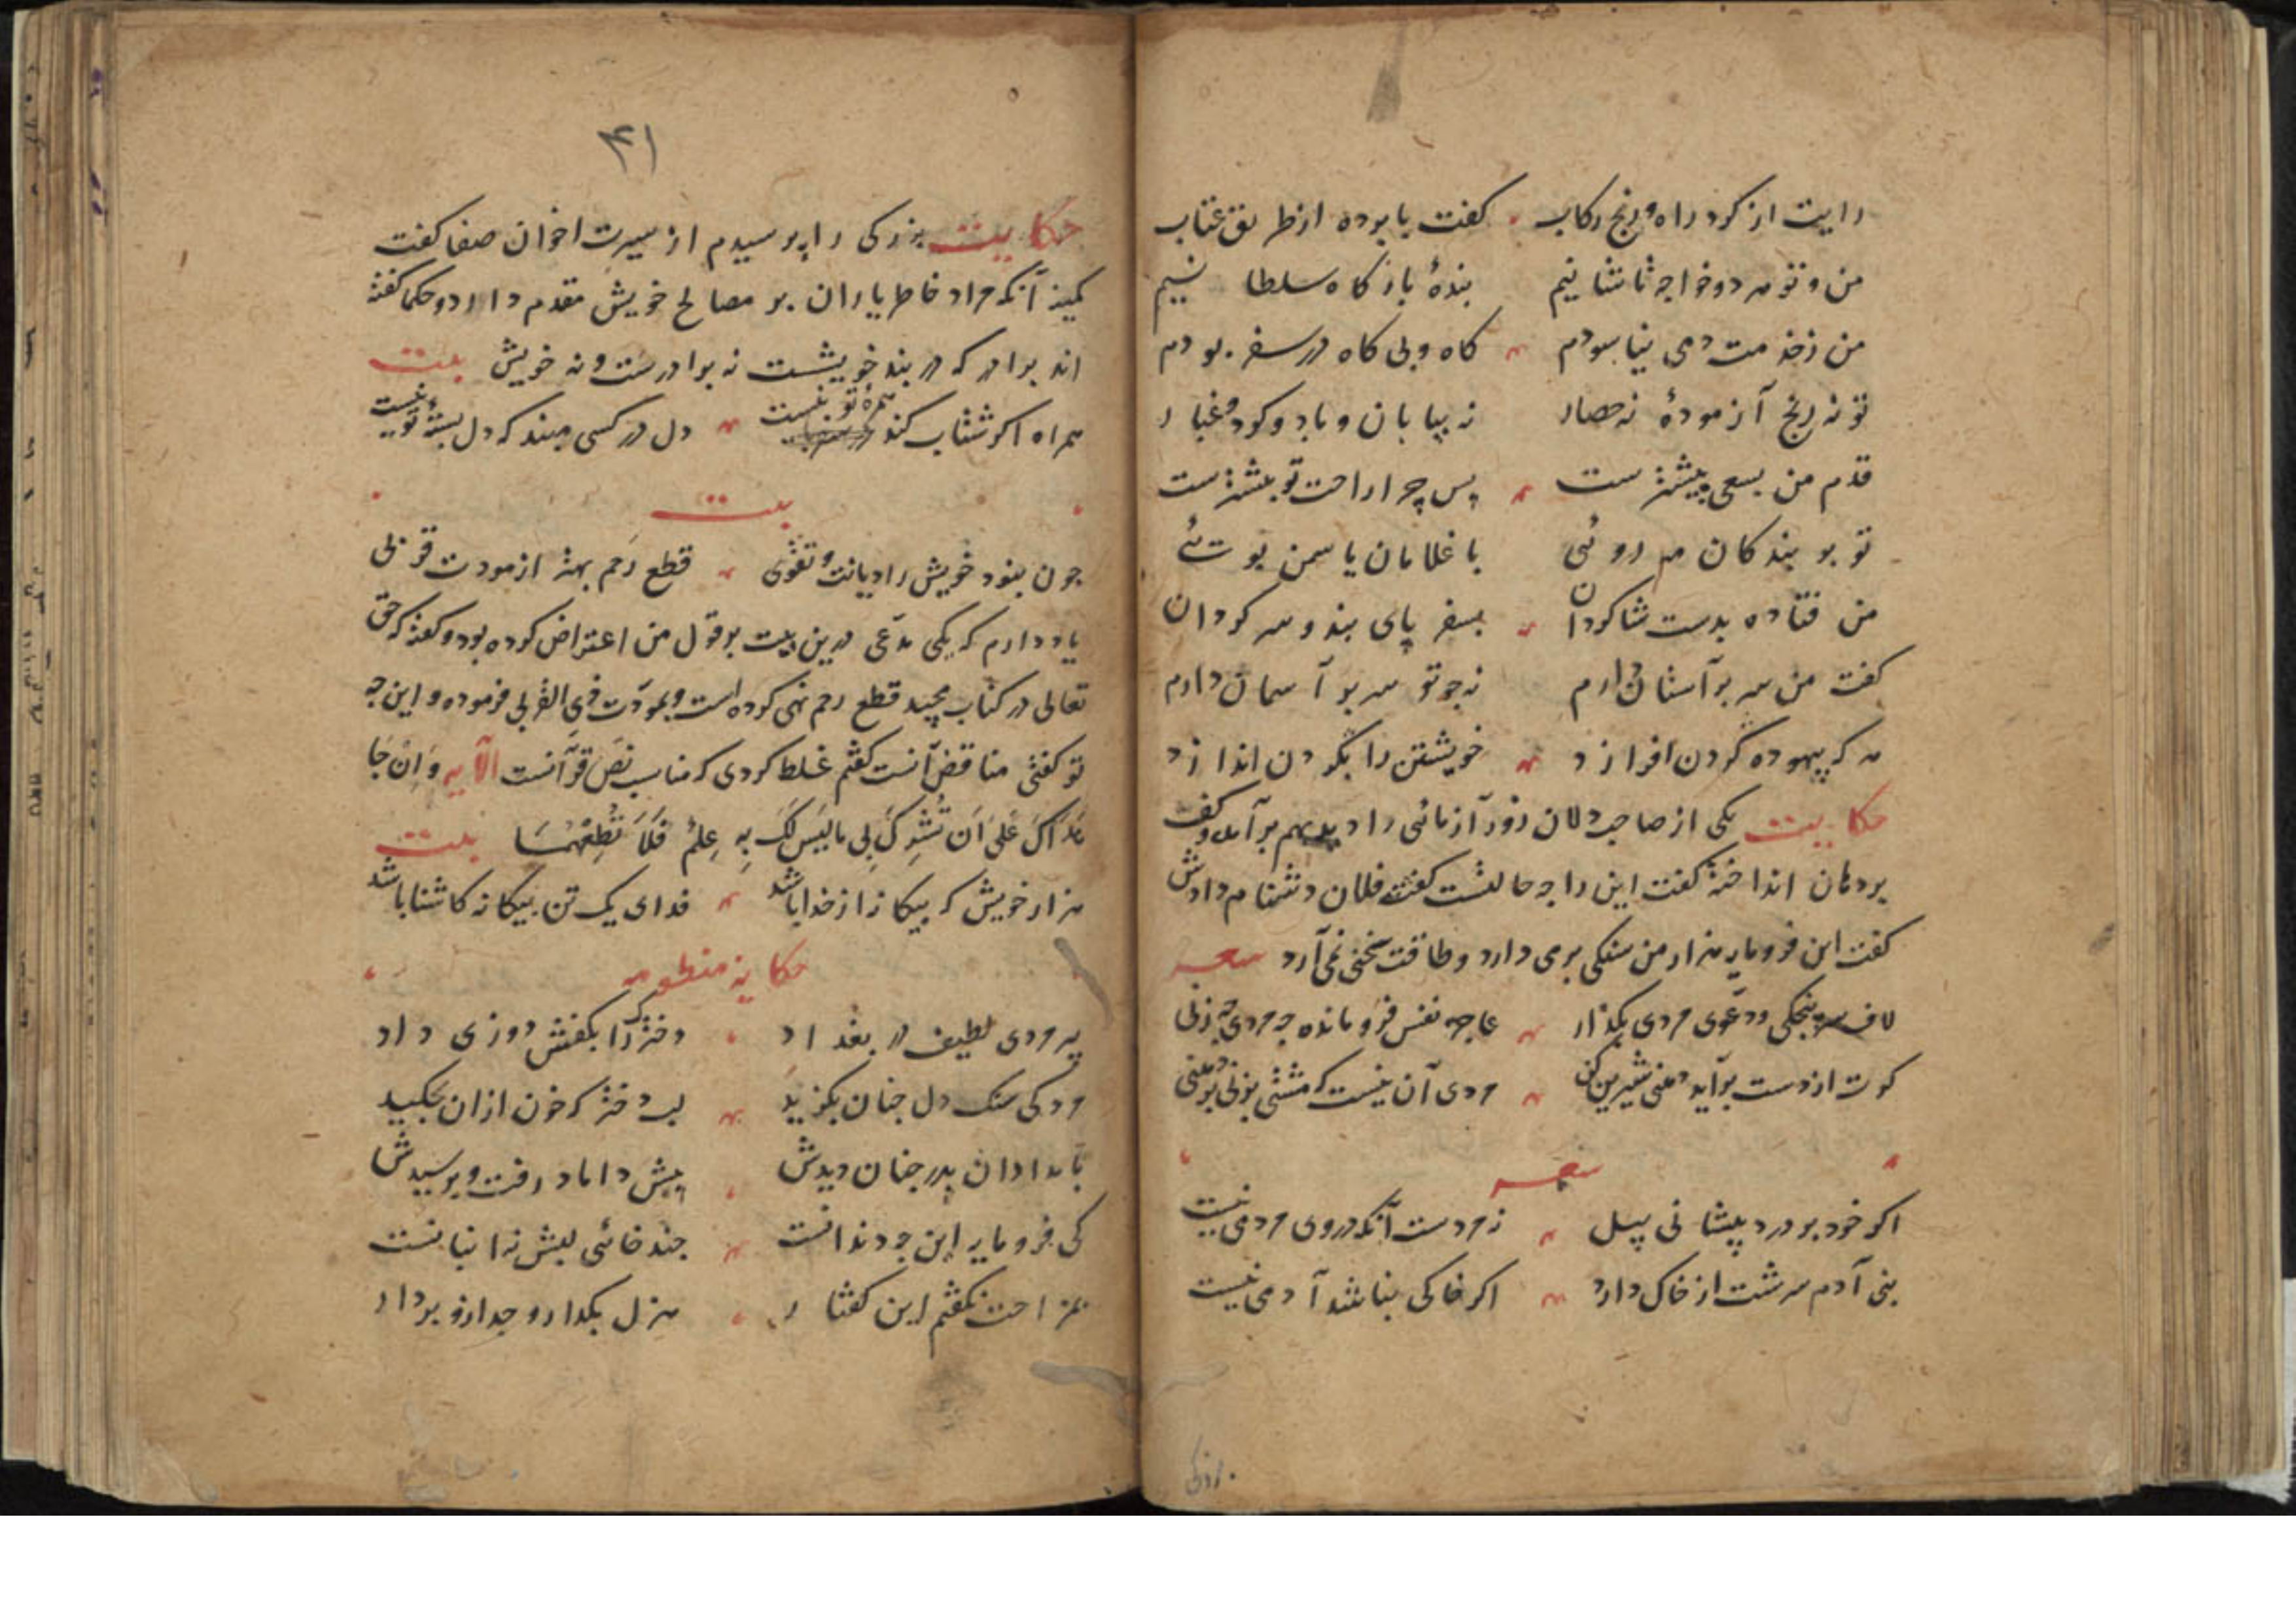 رایت از کرد راه و رنج رکاب کفت با برده از طریق عتاب
من و تو هر دو خواجه تاشانیم بندۀ بارکاه سلطانیم
من زخدمت دمی نیاسودم کاه و بی کاه در سفر بودم
تو نه رنج آزمودۀ نه حصار نه بیابان و باد و کرد و غبار
قدم من بسعی پیشترست پس چرا راحت تو بیشترست
تو بر بندکان مه روئی با غلامان یاسمن بوئی
من فتاده بدست شاکردان بسفر پای بند و سر کردان
کفت من سر بر آستان دارم نه چو تو سر بر آسمان دارم
هر که بیهوده کردن افرازد خویشتن را بکردن اندازد
حکایت یکی از صاحب دلان زور آزمائی را دید بهم برآمده و کف
بر دهان انداخته کفت این را چه حالتست کفتند فلان دشنام دادش
کفت این فرومایه هزار من سنکی برمی دارد و طاقت سخنی نمی آرد شعر
لاف سرپنجکی و دعوی مردی بکذار عاجز نفس فرومانده چه مردی چه زنی
کرت از دست برآید دهنی شیرین کن مردی آن نیست که مشتی بزنی بر دهنی
شعر
اکر خود بر درد پیشانی پیل نه مردست آنکه در وی مردمی نیست
بنی آدم سرشت از خاک دارد اکر خاکی نباشد آدمی نیست
۴۱
حکایت بزرکی را پرسیدم از سیرت اخوان صفا کفت
کمینه آنکه مراد خاطر یاران بر مصالح خویش مقدم دارد و حکما کفته
اند برادر که در بند خویشست نه برادرست و نه خویش بیت
همراه اکر شتاب کند همره تو نیست دل در کسی مبند که دل بستۀ تو نیست
بیت
چون نبود خویش را دیانت و تقوی قطع رحم بهتر از مودت قربی
یاد دارم که یکی مدعی درین بیت بر قول من اعتراض کرده بود و کفته که حق
تعالی در کتاب مجید قطع رحم نهی کرده است و بمودت ذی القربی فرموده و این چه
تو کفتی مناقض آنست کفتم غلط کردی که مناسب نص قرآنست الآیه وَاِنْ جَا
هَدَاکَ عَلی اَن تُشْرِکَ بِی مَا لَیسَ لَکَ بِهِ عِلمٌ فَلَا تُطِعْهُمَا بیت
هزار خویش که بیکانه از خدا باشد فدای یک تن بیکانه کاشنا باشد
حکایة منظومه
پیرمردی لطیف در بغداد دخترک را بکفش دوزی داد
مردکی سنک دل چنان بکزید لب دختر که خون ازان بچکید
بامدادان پدر چنان دیدش پیش داماد رفت و پرسیدش
کی فرومایه این چه دندانست چند خائی لبش نه انبانست
بمزاحت نکفتم این کفتار هزل بکذار و جد ازو بردار
بزرکی